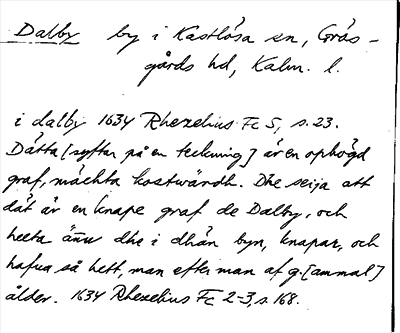 Dalby by i Kastlösa sn, Gräs-
gårds hd, Kalm. l.
i dalby 1634 Rhezelius Fc 5, s. 23.
Dätta [syftar på en teckning] är en ophögd
graf, mächta kostwärdh. Dhe seija att
dät är en knape graf de Dalby, och
heeta ännu dhe i dhän byn, knapar, och
hafua så hett, man efter man af g.[ammal]
ålder. 1634 Rhezelius Fc 2-3, s. 168.